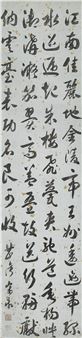 江南佳麗地金陵帝王州逶迤帶綠
水迢遞起朱樓飛甍夾馳道垂楊蔭
御溝凝笳翼高蓋疊鼓送華輈獻
納雲臺表功名良可收